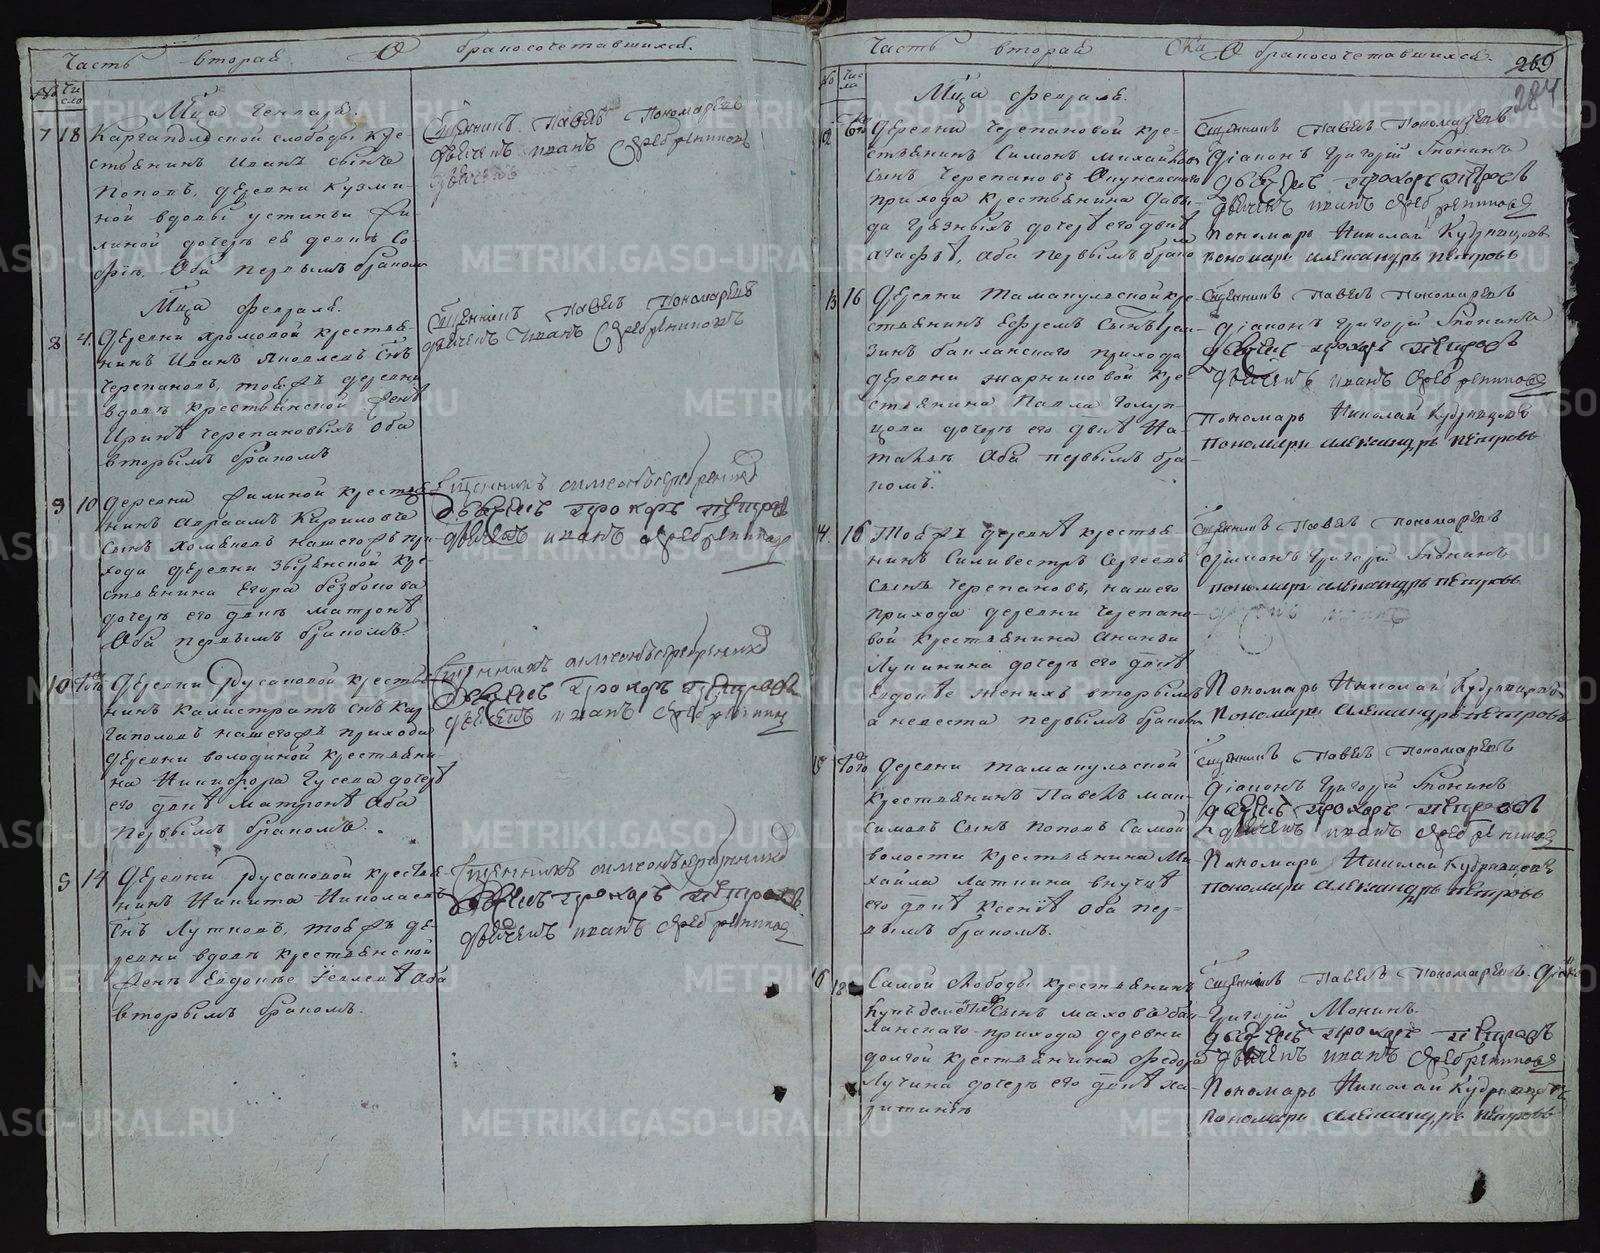 Часть вторая О бракосочетавшихся.
№ Чи
сло
Мца Генваря.
7 18 Каргапольской слободы кре-
стьянинъ Иванъ сынъ
Поповъ, деревни Кузми-
ной вдовы Устиньи Фи-
линой дочерь ее девка Со-
фья. Оба первымъ бракомъ
Священникъ Павелъ Пономаревъ
дьячекъ Иванъ Серебрениковъ
Мца февраля.
8 4. Деревни Хромовой крестья-
нинъ Иванъ Яковлевъ снъ
Черепановъ, той же деревни
вдовъ крестьянской женѣ
Иринѣ Черепановыхъ Оба
вторымъ бракомъ
Священникъ Павелъ Пономаревъ
дьячекъ Иванъ Серебрениковъ
9 10 Деревни Филиной крестья-
нинъ Авраамъ Кириловъ
сынъ Хоменовъ нашегожъ при-
хода деревни кре-
стьянина Егора
дочерь его двкѣ Матронѣ
Оба первымъ бракомъ
Священникъ Симеонъ Серебрениковъ
Дьячекъ Прокоръ Петровъ
дьячекъ Иванъ Серебрениковъ
10 Того Деревни Русаковой крестья-
нинъ Калистратъ снъ Кар
гаполовъ нашегожъ прихода
деревни Володиной крестьяни-
на Никифора Гусева дочерь
его двкѣ Матронѣ Оба
первымъ бракомъ.
Священникъ Симеонъ Серебрениковъ
Дьячекъ Прокоръ Петровъ
дьячекъ Иванъ Серебрениковъ
14 Деревни Русаковой крестья-
нинъ Никита Николаевъ
снъ Лутковъ, той жъ де-
ревни вдовъ крестьянской
женѣ Евдокьѣ Оба
вторымъ бракомъ.
Священникъ Симеонъ Серебрениковъ
Дьячекъ Прокоръ Петровъ
дьячекъ Иванъ Серебрениковъ
Часть вторая О бракосочетавшихся.
269
284
Чис
ла
Мца февраля.
Того Деревни Черепановой кре-
стьянинъ Симонъ Михайловъ
сынъ Черепановъ Окуневскаго
прихода крестьянина Давы-
да Грязныхъ дочерь его двкѣ
Агафьѣ, Оба первымъ брако
Священникъ Павелъ Пономаревъ
Діаконъ Григорій Мокинъ
Дьячекъ Прокоръ Петровъ
Дьячекъ Иванъ Серебрениковъ
Пономарь Николай Кудрявцовъ
пономарь Александръ Петровъ
13 16 Деревни Тамакульской кре-
стьянинъ Ефремъ сынъ
зинъ Бакланскаго прихода
деревни Жарниковой кре-
стьянина Павла Голуп-
цова дочерь его двкѣ На-
тальѣ Оба первымъ бра-
комъ.
Священникъ Павелъ Пономаревъ
Діаконъ Григорій Мокинъ
Дьячекъ Прокоръ Петровъ
Дьячекъ Иванъ Серебрениковъ
Пономарь Николай Кудрявцовъ
Пономарь Александръ Петровъ
14. 16 Той жъ деревни крестья-
нинъ Силивестръ Сергеевъ
сынъ Черепановъ, нашего
прихода деревни Черепано-
вой крестьянина Ананьи
Лупинина дочерь его двкѣ
Евдокье женихъ вторымъ
а невеста первымъ бракомъ
Священникъ Павелъ Пономаревъ
Діаконъ Григорій Мокинъ
пономарь Александръ Петровъ
Пономарь Николай Кудрявцовъ
Пономарь Александръ Петровъ
15 Того Деревни Тамакульской
крестьянинъ Павелъ Мак-
симовъ сынъ Поповъ Самой
волости крестьянина Ми-
хайла Латнина внучкѣ
его двкѣ Ксеніѣ Оба пер-
вымъ бракомъ.
Священникъ Павелъ Пономаревъ
Діаконъ Григорій Мокинъ
дьячекъ Прокоръ Петровъ
дьячекъ Иванъ Серебрениковъ
Пономарь Николай Кудрявцовъ
пономарь Александръ Петровъ
16 18 Самой слободы крестьянинъ
сынъ Маховъ Бак-
ланскаго прихода деревни
Долгой крестьянина Федора
Лучина дочерь его двкѣ Ха-
ритинѣ
Священникъ Павелъ Пономаревъ. Діако
Григорій Мокинъ.
дьячекъ Прокоръ Петровъ
дьячекъ Иванъ Серебрениковъ
Пономарь Николай Кудрявцовъ
Пономарь Александръ Петровъ
METRIKI.GASO-URAL.RU